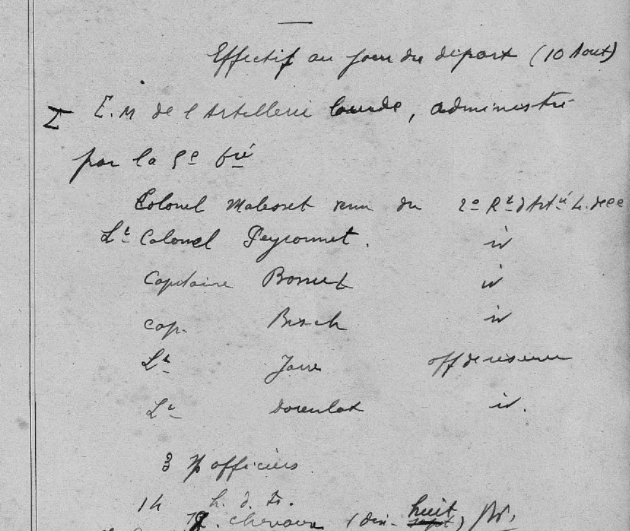 Effectif au jour du départ (10 Aout)
I E.M de l'Artillerie lourde, administré
par la 5e bie
Colonel venu du 2e Rt d'Artie L.
Lt Colonel Peyronnet. id
Capitaine Bonnet id
cap. Bisch id
Lt off de réserve
Lt id.
3 officiers
14 h. d. tr.
chevaux (dix- huit)